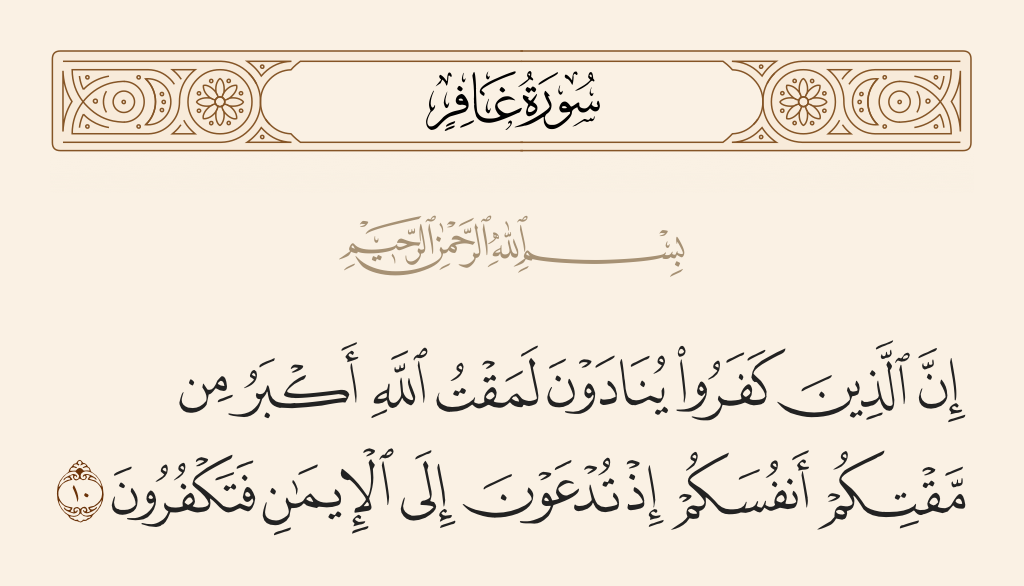 سُورَةُ غَافِرٍ
بِسْمِ ٱللَّهِ ٱلرَّحْمَٰنِ ٱلرَّحِيمِ
إِنَّ ٱلَّذِينَ كَفَرُوا۟ يُنَادَوْنَ لَمَقْتُ ٱللَّهِ أَكْبَرُ مِن
مَّقْتِكُمْ أَنفُسَكُمْ إِذْ تُدْعَوْنَ إِلَى ٱلْإِيمَٰنِ فَتَكْفُرُونَ ١٠